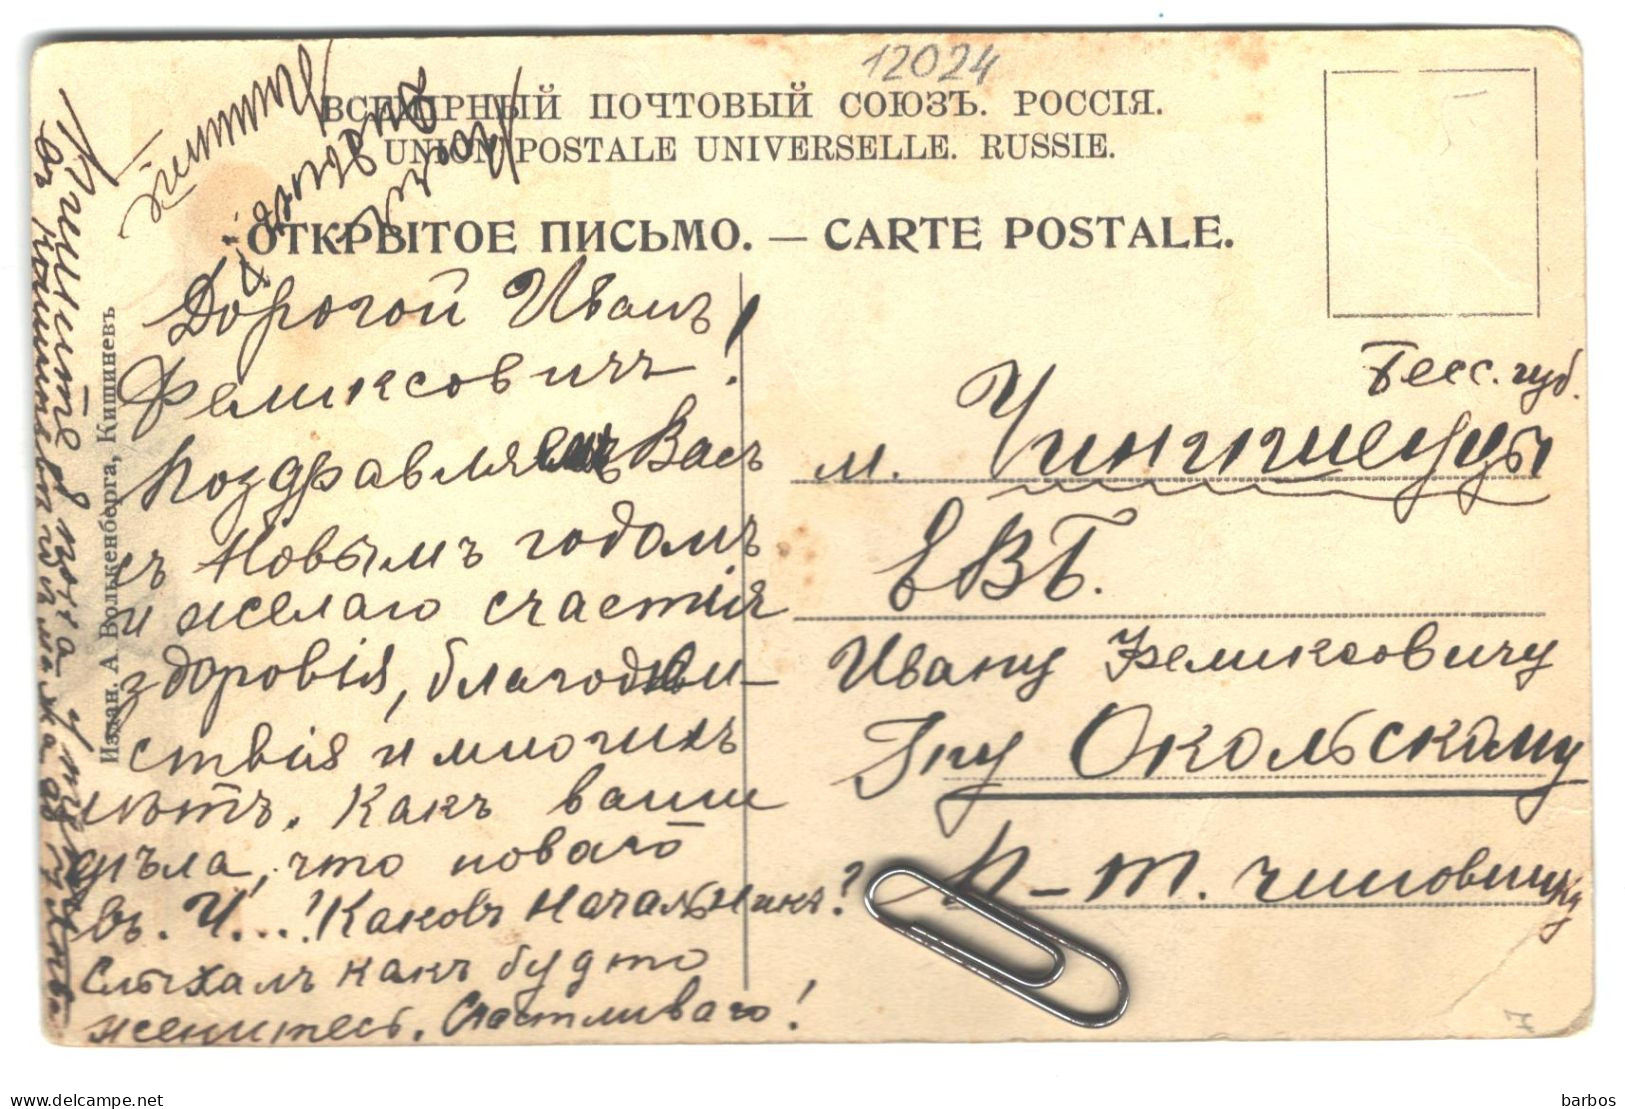 12024
ВСЕМІРНЫЙ ПОЧТОВЫЙ СОЮЗЪ. РОССІЯ.
UNION POSTALE UNIVERSELLE. RUSSIE.
ОТКРЫТОЕ ПИСЬМО. — CARTE POSTALE.
Дорогой Иванъ
Феликсовичъ!
Поздравляемъ Васъ
съ Новымъ годомъ
и желаю счастія
здоровія, благоден-
ствія и многихъ
лѣтъ. Какъ ваши
дѣла, что новаго
въ. Ч...! Каковъ Начальникъ?
Слыхалъ какъ будто
женитесь. Счастливаго!
Издан. А. Волькенберга, Кишиневъ
Бесс. губ.
м. Чингишеуцы
ЕВБ.
Ивану Феликсовичу
Гну Окольскому
П-Т. чиновнику
7
barbos